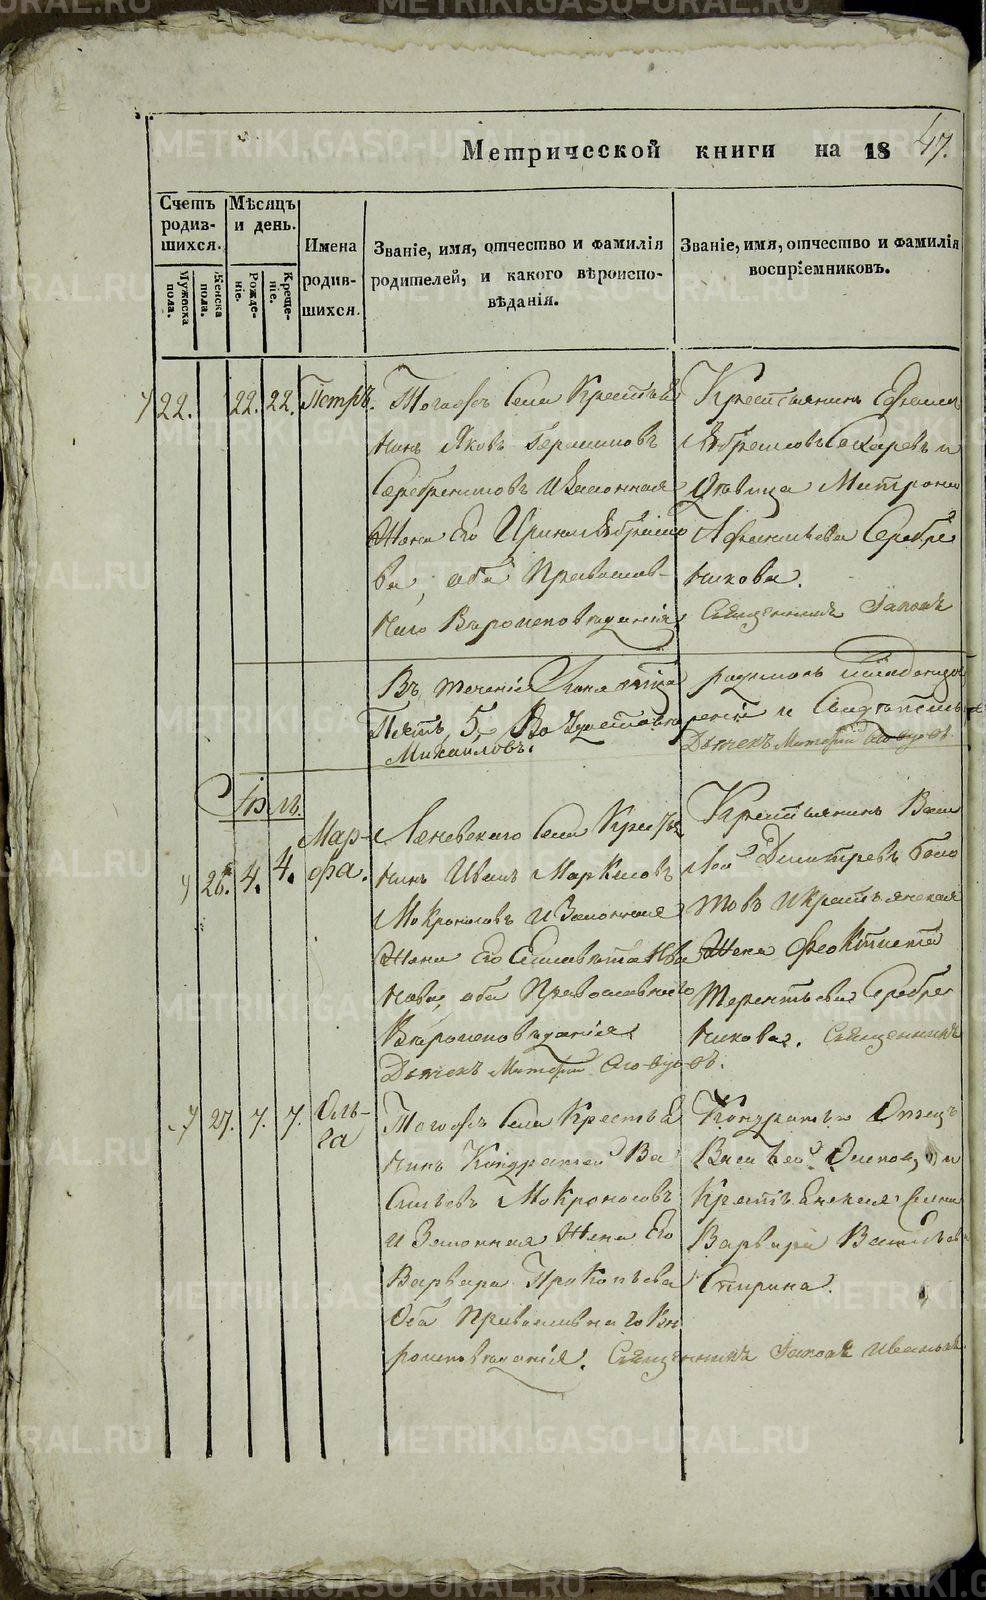 METRIKI.GASO-URAL.RU
Метрической книги на 1847.
Счетъ родив-шихся.
Мѣсяцъ и день.
Имена родив-шихся.
Званіе, имя, отчество и фамилія
родителей, и какого вѣроиспо-
вѣданія.
Званіе, имя, отчество и фамилія
воспріемниковъ.
Мужеска пола.
Женска пола.
Рожде-ніе.
Креще-ніе.
22. 22. 22. Петръ.
Тогожъ Села Крестья
нинъ Яковъ Герасимовъ
Серебрениковъ И Законная
Жена Его Ирина Абрамо
ва, оба Православ-
наго Вѣроисповѣданія,
Крестьянинъ
Абрамовъ Сахаревъ и
Дѣвица Митрона
Афанасьева Серебре
никова.
Священникъ Іаковъ
Въ теченіи
Пѣтъ 5,
Михайловъ.
Дьячекъ
Іюль.
26. 4. 4. Мар-
фа.
Леневскаго Села Крестья
нинъ Иванъ Маркеловъ
Мокроносовъ И Законная
Жена Его Елисавета Ива
нова, оба Православнаго
Вѣроисповѣданія,
Дьячекъ
Крестьянинъ Васи
лей Дмитревъ Боло
товъ И Крестьянская
Жена Феоктиста
Терентьева Серебре
никова. Священникъ
27. 7. 7. Оль-
га
Тогожъ Села Крестья
нинъ Кондратей Ва
сильевъ Мокроносовъ
И Законная Жена Его
Варвара Прокопьева
Оба Православнаго Вѣ
роисповѣданія. Священникъ Іаковъ Ивановъ
Кондратья Отецъ
Василей Осиповъ и
Крестьянская
Варвара Васильева
Спирина.